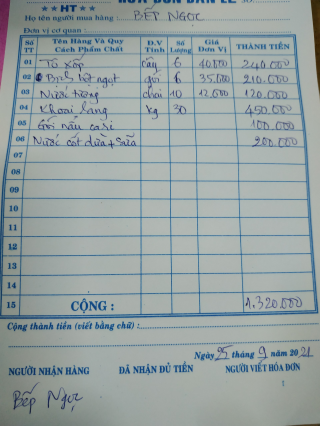 HÓA ĐƠN BÁN LẺ
★★ HT ★★
Họ tên người mua hàng: BẾP NGỌC
Đơn vị cơ quan :
Số TT Tên Hàng Và Quy Cách Phẩm Chất Đ.V Tính Số Lượng Giá Đơn Vị THÀNH TIỀN
01 cây 6 40.000 240.000
02 Bịch bột ngọt gói 6 35.000 210.000
03 Nước tương chai 10 12.000 120.000
04 Khoai lang kg 30 450.000
05 Gói nấu cà ri 100.000
06 Nước cốt dừa + Sữa 200.000
07
08
09
10
11
12
13
14
15 CỘNG : 1.320.000
Cộng thành tiền (viết bằng chữ) :
Ngày 25 tháng 9 năm 2021
NGƯỜI NHẬN HÀNG ĐÃ NHẬN ĐỦ TIỀN NGƯỜI VIẾT HÓA ĐƠN
Bếp Ngọc